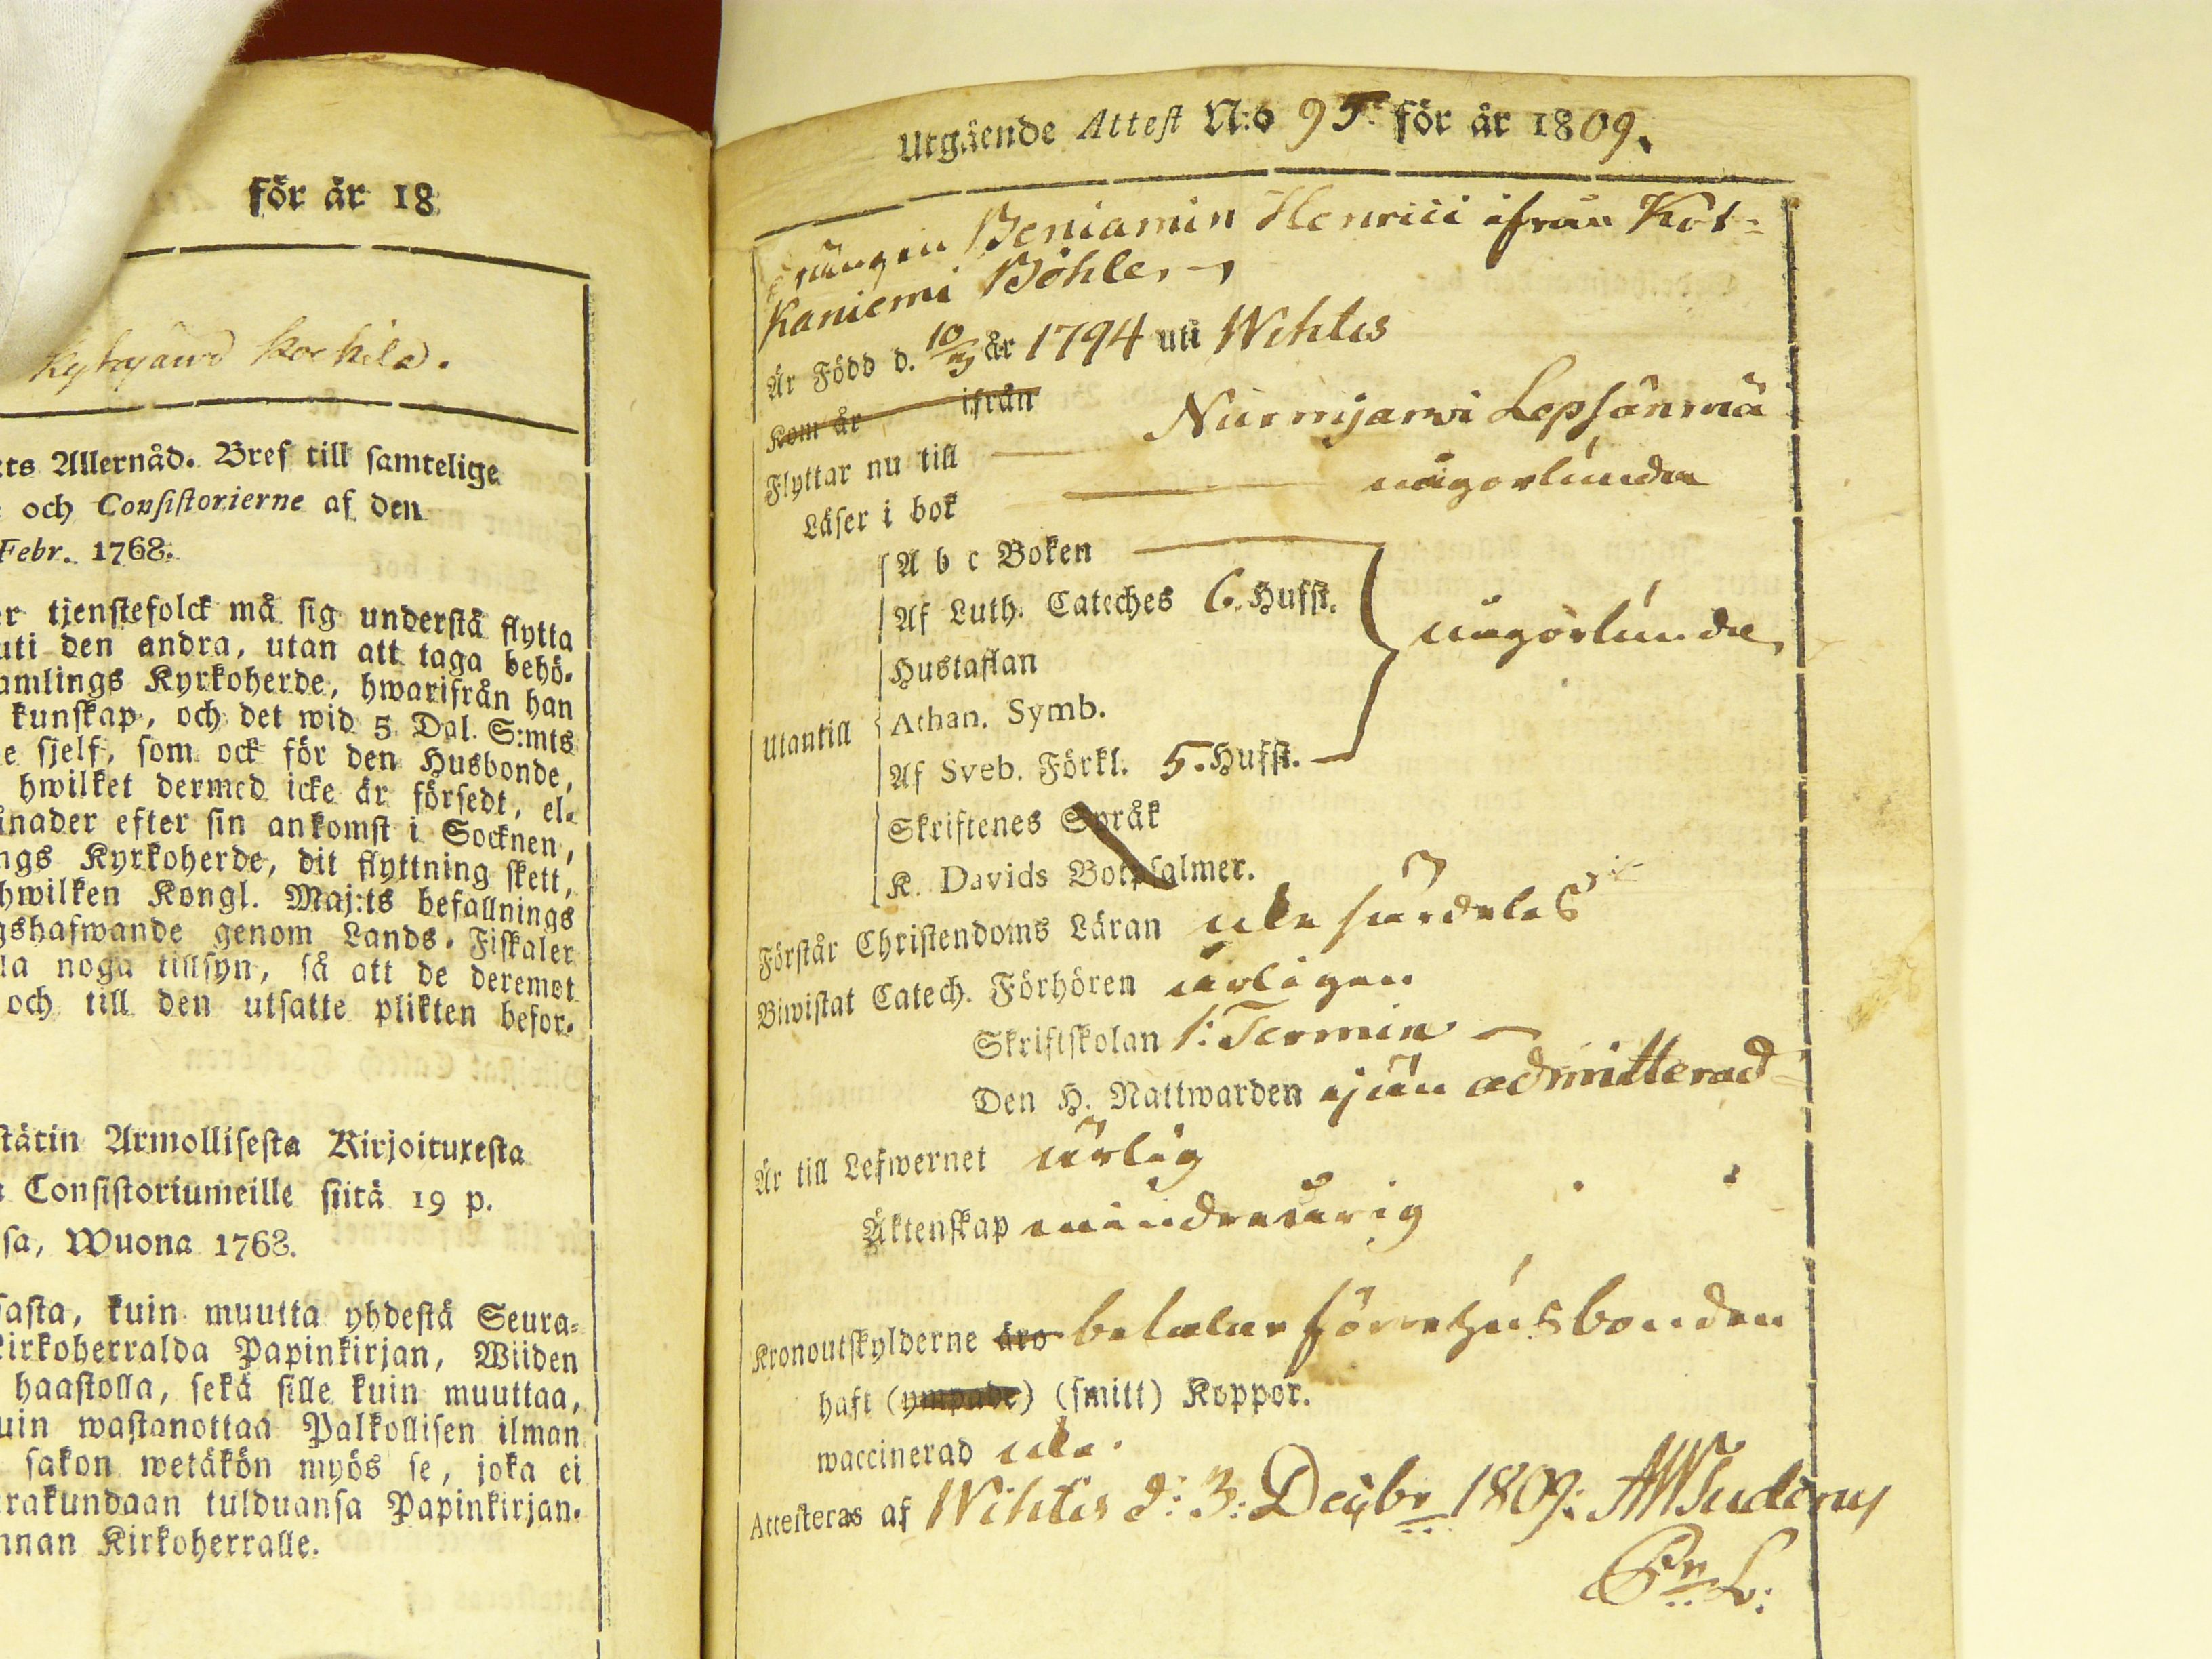 för år 18
kochila.
:ts Allernåd. Bref till samtelige
och Consistorierne af den
Febr. 1768.
er tjenstefolck må sig understå flytta
uti den andra, utan att taga behö-
amlings Kyrkoherde, hwarifrån han
kunskap, och det wid 5 Dal. S:mts
e sjelf, som ock för den Husbonde,
hwilket dermed icke är försedt, el-
ånader efter sin ankomst i Socknen,
ngs Kyrkoherde, dit flyttning skett,
hwilken Kongl. Maj:ts befallnings
gshafwande genom Lands-Fiskaler
la noga tillsyn, så att de deremot
och till den utsatte plikten befor-
stätin Armollisesta Kirjoituxesta
Consistoriumeille siitä 19 p.
sa, Wuona 1768.
sasta, kuin muutta yhdestä Seura-
kirkoherralda Papinkirjan, Wiiden
haastolla, sekä sille kuin muuttaa,
uin wastanottaa Palkollisen ilman
sakon wetäkön myös se, joka ei
rakundaan tulduansa Papinkirjan-
nnan Kirkoherralle.
Utgående Attest N:o 95. för år 1809.
Drängen Beniamin Henrici ifrån Kot-
kaniemi Böhle,
Är Född d. 10/3 år 1794 uti Wihtis
Kom år ifrån
Flyttar nu till Nurmijarvi Lepsänmä
Läser i bok någorlunda
A b c Boken
Af Luth. Cateches 6. Hufst.
någorlunda
Hustaflan
Utantill
Athan. Symb.
Af Sveb. Förkl. 5. Hufst.
Skriftenes Språk
K. Davids Botpsalmer.
Förstår Christendoms Läran icke särdeles
Biwistat Catech. Förhören årligen
Skriftskolan 1: Termin
Den H. Nattwarden ej än admitterad
Är till Lefwernet ärlig
Äktenskap minderårig
Kronoutskylderne äro betalar förre husbonden
haft (ympade) (smitt) Koppor.
waccinerad icke.
Attesteras af Wihtis d: 3: Decbr 1809: